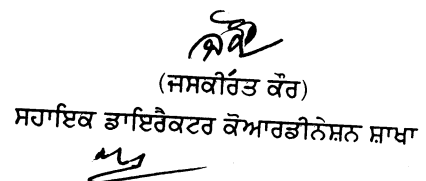 (ਜਸਕੀਰਤ ਕੌਰ)
ਸਹਾਇਕ ਡਾਇਰੈਕਟਰ ਕੋਆਰਡੀਨੇਸ਼ਨ ਸ਼ਾਖਾ